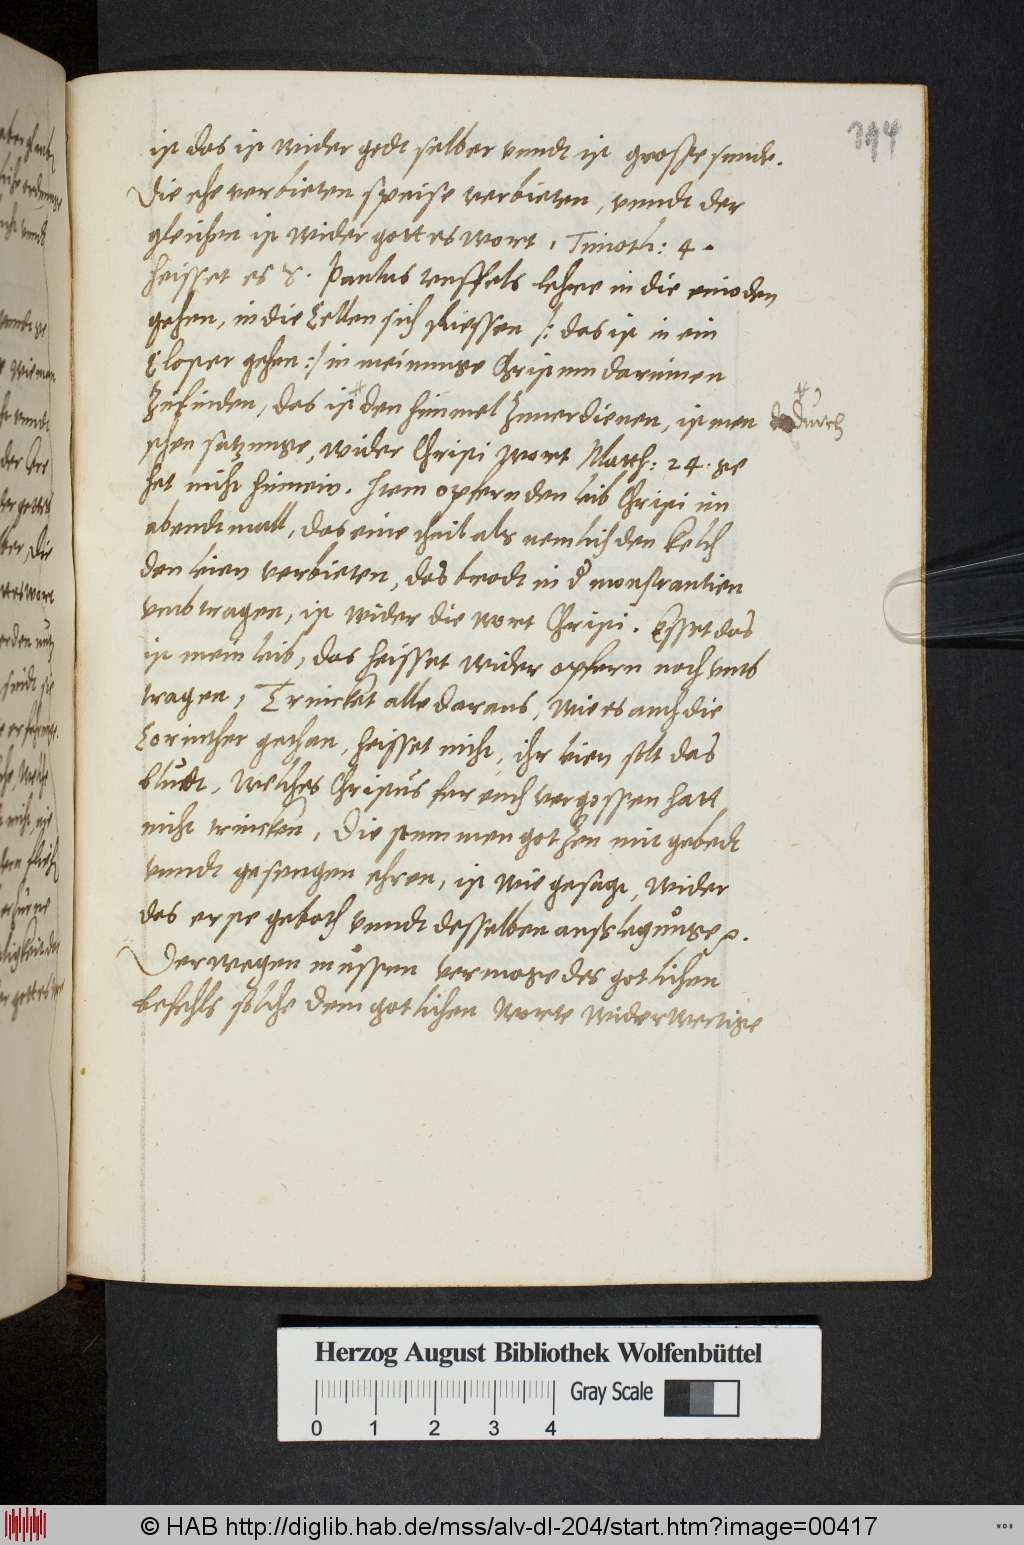 194
ist das ist wider gott selber vnndt ist grosse sunde.
Die ehe verbieten speise verbieten, vnndt der
gleichen ist wider gottes wort, Timoth: 4.
heisset es S. Paulus teuffels lehre in die einoden
gehen, in die Cellen sich schliessen /: das ist in ein
Closter gehen :/ in meinunge Christum darinnen
Zufinden, das ist * den himmel Zuuerdienen, ist men
* dadurch
schen satzunge, wider Christi Wort Matth: 24. ge
het nicht hinnein. Item opfern den leib Christi im
abendtmall, das eine theil als nemlich den kelch
den leien verbieten, das brodt in d monstrantien
vmbtragen, ist wider die wort Christi. Esset das
ist mein leib, das heisset wider opfern noch vmb
tragen, Trincket alle daraus, wie es auch die
Corinther gethan, heisset nicht, ihr leien solt das
bludt, welches Christus fur euch vergossen hatt
nicht trincken, Die stummen gotzen mit gebedt
vnndt gesengen ehren, ist wie gesagt, wider
das erste geboth vnndt desselben ausslegunge
Derwegen mussen vermoge des gotlichen
befehls solche dem gotlichen worte widerwertige
Herzog August Bibliothek Wolfenbüttel
Gray Scale
0 1 2 3 4
© HAB http://diglib.hab.de/mss/alv-dl-204/start.htm?image=00417